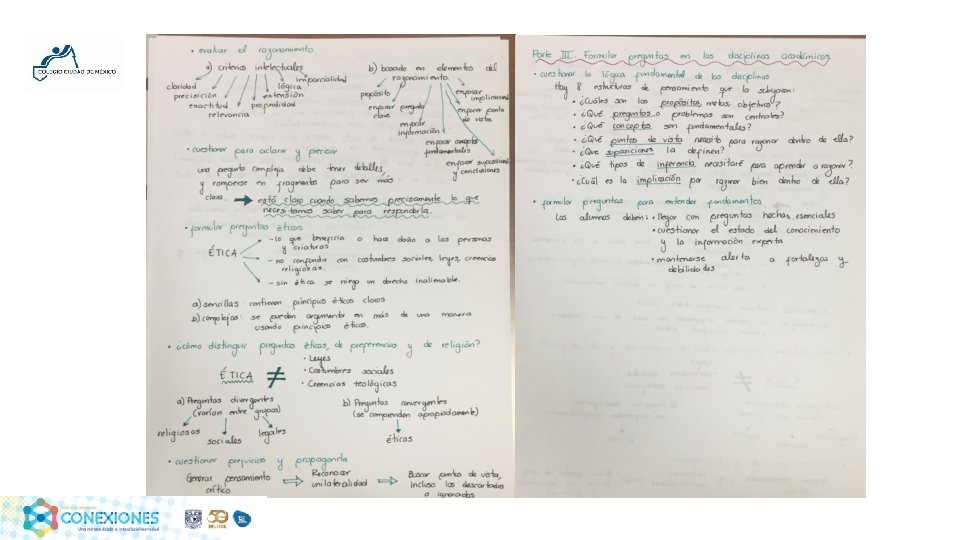 COLEGIO CIUDAD DE MÉXICO
• evaluar el razonamiento
a) criterios intelectuales
claridad
precisición
exactitud
relevancia
profundidad
extensión
lógica
imparcialidad
b) basado en elementos del
razonamiento
propósito
enfocar pregunta
clave
enfocar
información
enfocar concepto
fundamentales
enfocar suposiciones
y conclusiones
enfocar punto
de vista
enfocar
implicaciones
• cuestionar para aclarar y precisar
una pregunta compleja debe tener detalles,
y romperse en fragmentos para ser más
clara. → está claro cuando sabemos precisamente lo que
necesitamos saber para responderla.
• formular preguntas éticas
ÉTICA
- lo que beneficia o hace daño a las personas
y criaturas
- no confundir con costumbres sociales, leyes, creencias
religiosas.
- sin ética se niega un derecho inalienable.
a) sencillas: contienen principios éticos claros
b) complejas: se pueden argumentar en más de una manera
usando principios éticos.
• ¿cómo distinguir preguntas éticas, de preferencias y de religión?
ÉTICA ≠
• Leyes
• Costumbres sociales
• Creencias teológicas
a) Preguntas divergentes
(varían entre grupos)
religiosas
sociales
legales
b) Preguntas convergentes
(se comprenden apropiadamente)
éticas
• cuestionar prejuicios y propaganda
Generar pensamiento
crítico
⇒ Reconocer
unilateralidad
⇒ Buscar puntos de vista,
incluso los descartados
o ignorados
Parte III. Formular preguntas en las disciplinas académicas
• cuestionar la lógica fundamental de las disciplinas
Hay 8 estructuras de pensamiento que la subyacen:
• ¿Cuáles son los propósitos, metas, objetivos?
• ¿Qué preguntas o problemas son centrales?
• ¿Qué conceptos son fundamentales?
• ¿Qué puntos de vista necesito para razonar dentro de ella?
• ¿Que suposiciones la definen?
• ¿Qué tipos de inferencia necesitaré para aprender a razonar?
• ¿Cuál es la implicación por razonar bien dentro de ella?
• formular preguntas para entender fundamentos
Los alumnos deben: • llegar con preguntas hechas, esenciales
• cuestionar el estado del conocimiento
y la información experta
• mantenerse alerta a fortalezas y
debilidades
CONEXIONES
Una mirada desde la interdisciplinariedad
UNAM